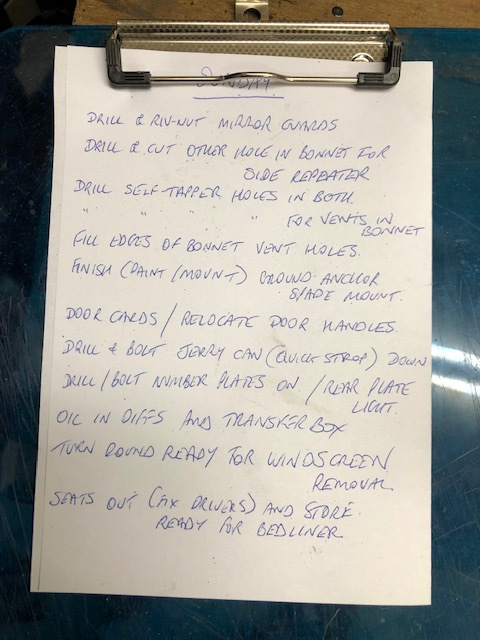 SUNDAY
DRILL & RIV-NUT MIRROR GUARDS
DRILL & CUT OTHER HOLE IN BONNET FOR
SIDE REPEATER
DRILL SELF-TAPPER HOLES IN BOTH.
" " " " FOR VENTS IN
BONNET
FILL EDGES OF BONNET VENT HOLES.
FINISH (PAINT/MOUNT) GROUND ANCHOR
SPADE MOUNT.
DOOR CARDS / RELOCATE DOOR HANDLES.
DRILL & BOLT JERRY CAN (QUICK STROP) DOWN
DRILL/BOLT NUMBER PLATES ON / REAR PLATE
LIGHT.
OIL IN DIFFS AND TRANSFER BOX
TURN ROUND READY FOR WINDSCREEN
REMOVAL
SEATS OUT (FIX DRIVERS) AND STORE.
READY FOR BEDLINER